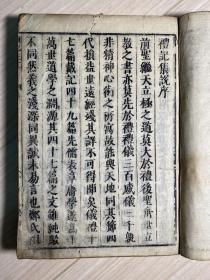 禮記集說序
前聖繼天立極之道莫大於禮後聖垂世立
敎之書亦莫先於禮禮儀三百威儀三千孰
非精神心術之所寓故能與天地同其節四
代損益世遠經殘其詳不可得聞矣儀禮十
七篇戴記四十九篇先儒表章庸學遂爲千
萬世道學之淵源其四十七篇之文雖純駁
不同然義之淺深同異誠未易言也鄭氏